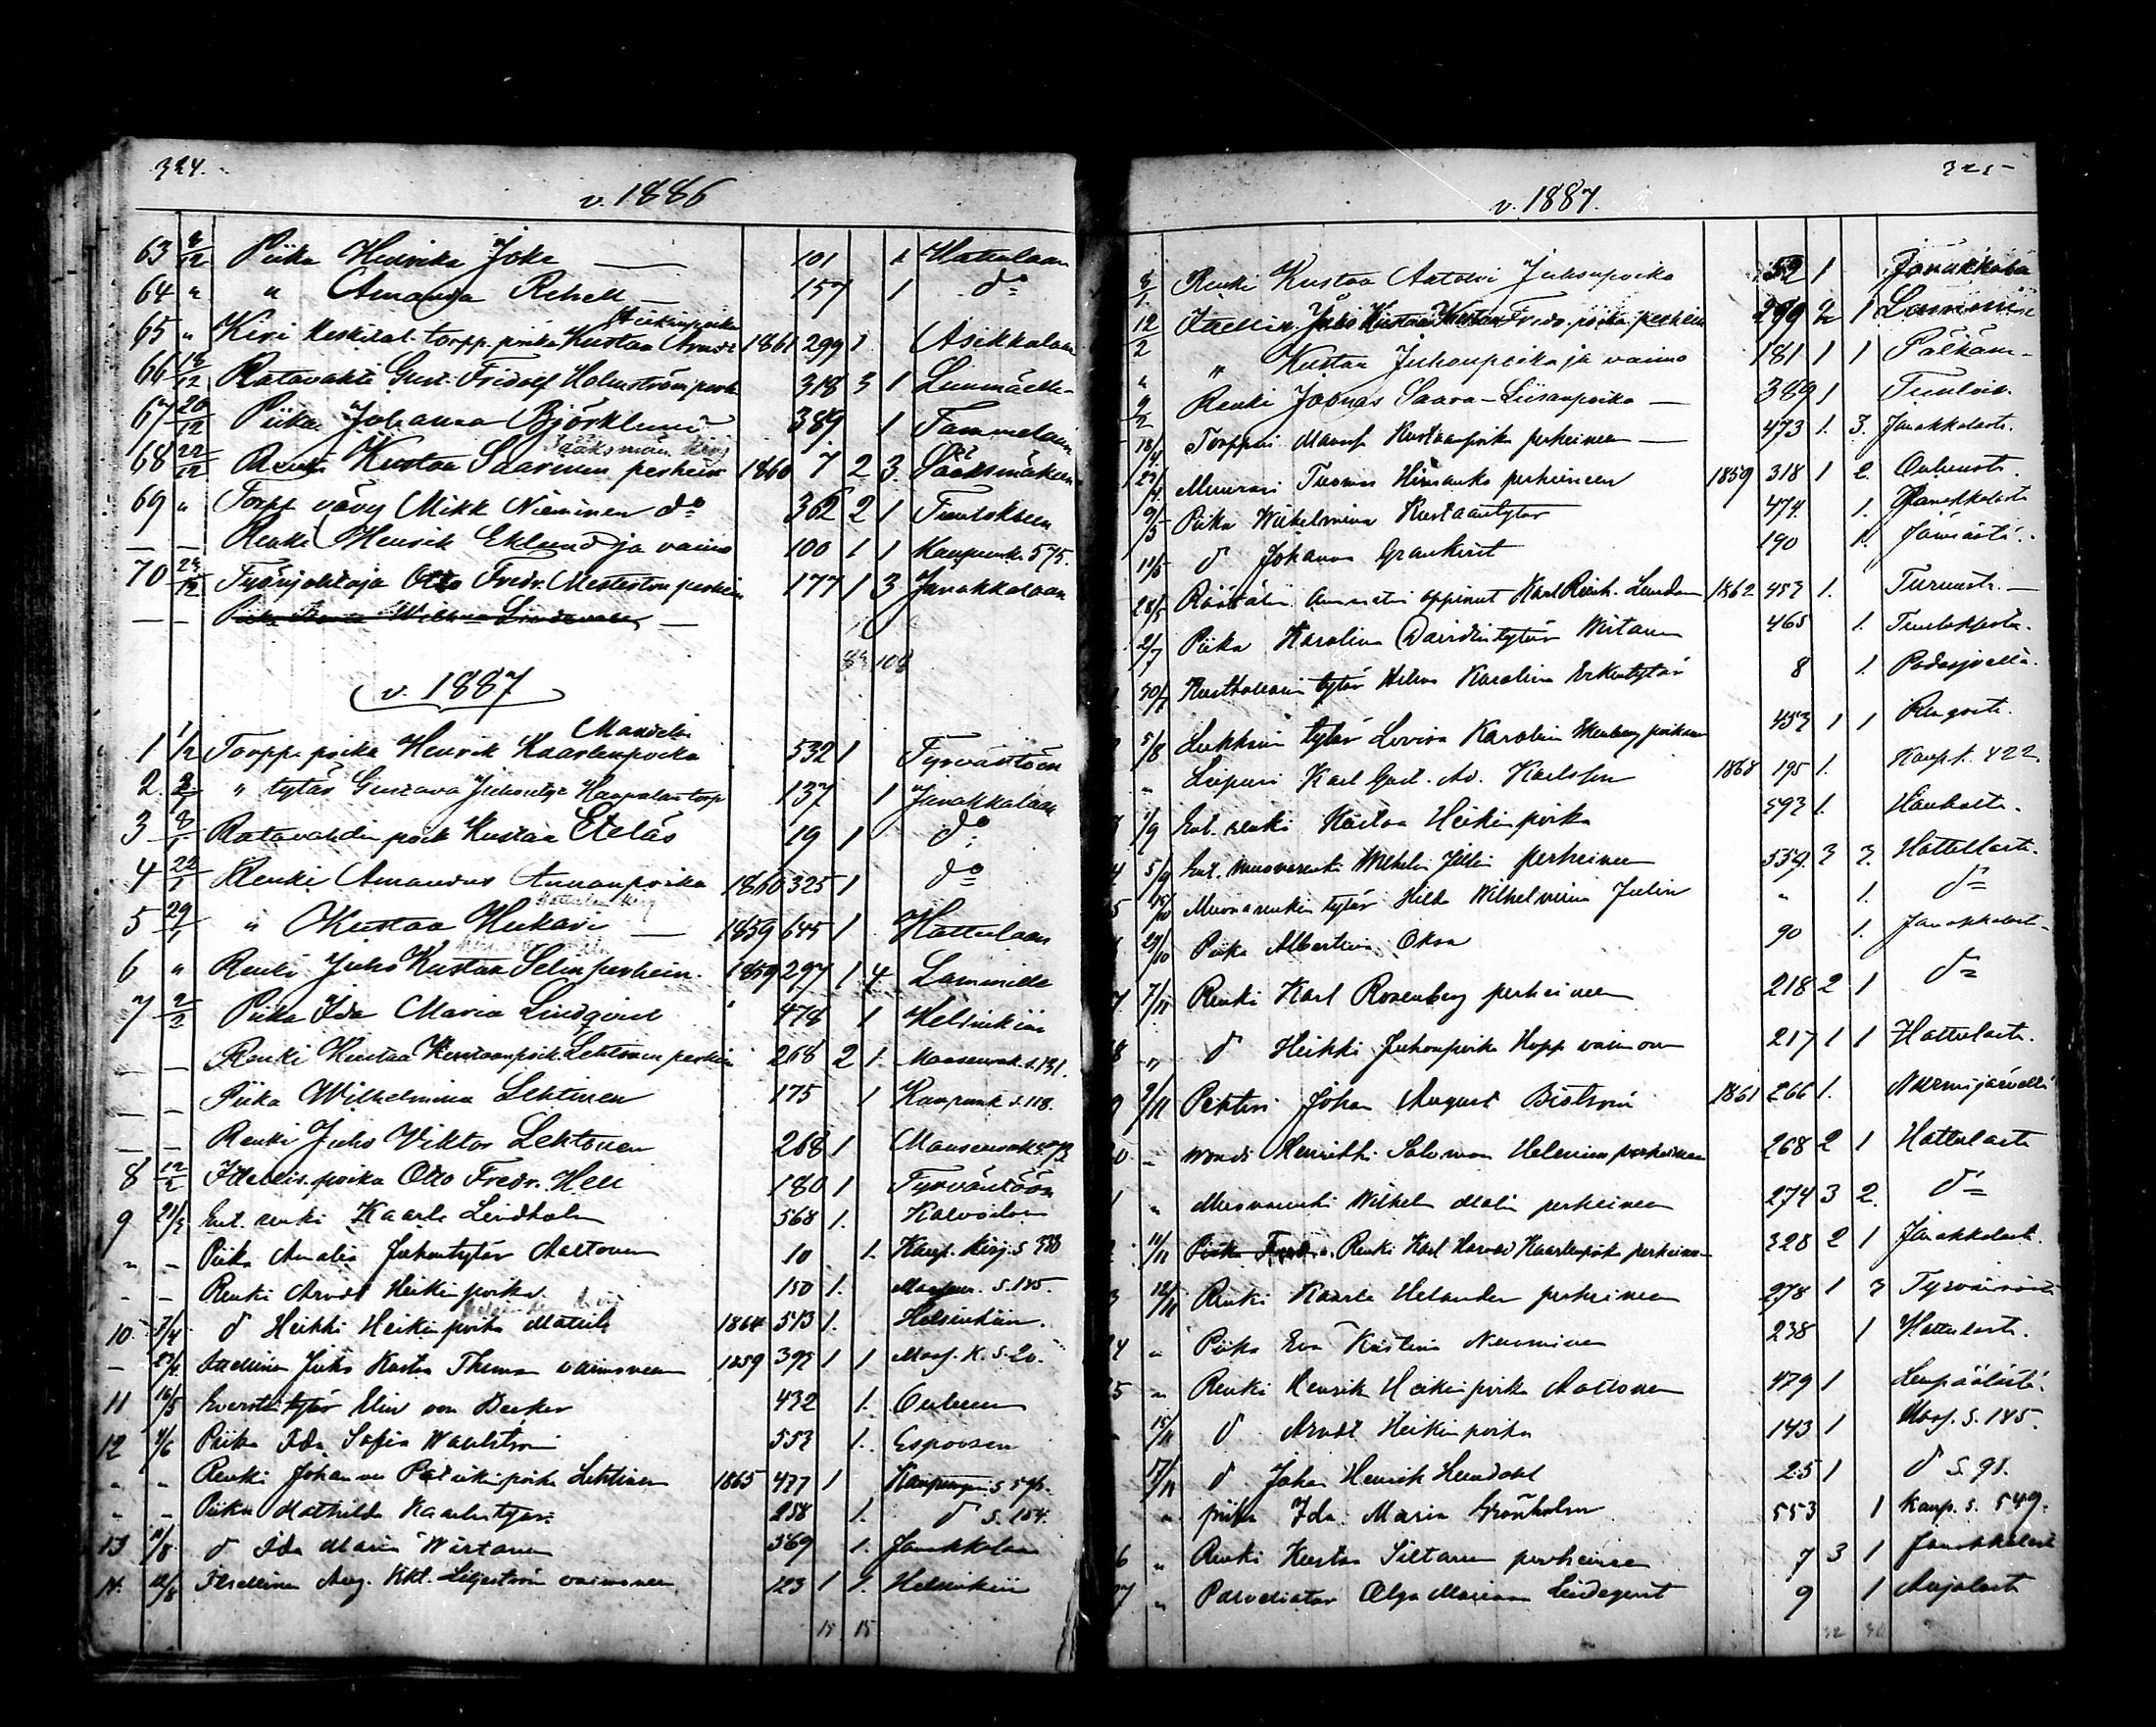 324.
v. 1886
63 8/12 Piika Hedvika Joke — 101 1 Hattulaan
64 " " Amanda Rehell — 157 1 do
Heikinpoika
65 " Kivi torpp. poika Kustaa 1861 299 1 Asikkalaan
66 18/12 Ratavahti Gust. Fridolf Holmström perh. 318 3 1
67 20/12 Piika Johanna Björklund 389 1 Tammelaan
Sääksmäen kirj
68 22/12 Renki Kustaa Saarinen perhein 1860 7 2 3. Sääksmäkeen
69 " Torpp vävy Mikk Nieminen do 362 2 1 Tuulokseen
— — Renki Henrik Eklund ja vaimo 100 1 1 Kaupunk. 575.
70 Työnjohtaja Otto Fredr. perhein 177 1 3 Janakkalaan
— — Wilhma —
108
v. 1887
Mandelin
1 1/2 Torppa poika Henrik Kaarlenpoika 532 1 Tyrväntöön
2. " tytär Gustava Juhontyt. torp 137 1 Janakkalaan
3 3/1 Ratavahdin poik Kustaa Eteläs 19 1 do
4 22/1 Renki Amandus Annanpoika 1860 325 1 do
Hattulan kirj
5 29/1 " Kustaa Hukari — 1859 645 1 Hattulaan
6 " Renki Juho Kustaa Selin perhein. 1859 297 1 4 Lammille
7 2/2 Piika Ida Maria Lindqvist 478 1 Helsinkiin
— — Renki Kustaa Kustaanpoik Lehtonen perhein 268 2 1. Maaseurak. s. 131.
— — Piika Wilhelmina Lehtinen 175 1 Kaupunk s. 118.
— — Renki Juho Viktor Lehtonen 268 1 Maaseurak s. 73
8 12/2 Itsellis. poika Otto Fredr. Hell 180 1 Tyrväntöön
9 21/3 Ent. renki Kaarle Lindholm 568 1. Kalvolaan
" — Piika Amalia Juhontytär Aaltonen 10 1. Kaup. kirj. s 338
- - Renki Arvdt Heikinpoika 150 1. Maaseur. s. 185.
10. 3/4 d Heikki Heikinpoika 1864 513 1. Helsinkiin.
— Itsellinen Juho Kustaa Thoman vaimoneen 1859 392 1 1 Maas. K. s. 20.
11 16/5 Everstin tytär Elin von Becker 432 1. Ouluun
12 4/6 Piika Ida Sofia Wahlström 553 1. Espooseen
" " Renki Johannes Lehtinen 1865 477 1
" " Piika Mathilda Kaarlentytär 258 1. d s. 154.
13 11/8 d Ida Maria Wirtanen 369 1. Janakkalaan
14. 12/8 Itsellinen Aug. Liljeström vaimoneen 123 1 1. Helsinkiin
15 15
325
v. 1887.
8/1 Renki Kustaa Antton Juhonpoika 52 1 Janakkala
12/2 Itsellin. Juho Kustaa Fredr. poika perhein 299 2 1 Lammin
" " Kustaa Juhonpoika ja vaimo 181 1 1 Pälkän-
9/2 Renki Joonas Saara-Liisanpoika — 389 1 Tuulois.
18/4 Torppari Kustaanpoika perheineen — 473 1. 3. Janakkalasta.
23/4 Muurari Tuomas perheineen 1859 318 1 2. Oulusta.
9/5 Piika Wilhelmina Kustaantytär 474 1. Janakkalasta
14/5 d Johanna Grankvist 190 1.
28/5 Räätälin ammatin oppinut Karl Reinh. 1862 453 1. Turusta. —
2/7 Piika Karolina Davidintytär Wirtanen 465 1. Tuulokselta.
30/7 tytär Hilma Karolina Erkintytär 8 1. Padasjoelta.
5/8 tytär Lovisa Karolina poikineen 453 1 1
" Leipuri Karl Gust. Ad. Karlsson 1868 195 1. Kaup. s. 422
1/9 Ent. renki Kustaa Heikinpoika 593 1. Hauholta.
5/9 Ent. muonarenki Wilhelm Julin perheineen 559. 3 3. Hattulasta.
15/10 Muonarenkin tytär Hilda Wilhelmina Julin " 1. do
29/10 Piika Albertina Oksa 90 1. Janakkalasta
7/11 Renki Karl Rosenberg perheineen 218 2 1 do
" d Heikki Juhonpoika Hopp vaimon 217 1 1 Hattulasta.
9/11 Pehtori Johan August Biström 1861 266 1. Nurmijärveltä
" Henrikki Salomon Helenius perheineen 268 2 1 Hattulasta
" Muonarenki Wilhelm Malin perheineen 274 3 2. do
11/11 Renki Karl Kaarlenpoika perheineen 328 2 1 Janakkalast.
12/11 Renki Kaarle Helander perheineen 278 1 3
" Piika Eva Kristina Nurminen 238 1 Hattulasta.
" Renki Henrik Heikinpoika Aaltonen 479 1 Lempäälästä.
15/11 d Arvdt Heikinpoika 143 1 Maas. s. 185.
17/11 d Johan Henrik 25 1 d s. 91.
" piika Ida Maria Grönholm 553 1 Kaup. s. 549.
" Renki Kustaa Siltanen perheineen 7 3 1 Janakkalast
" Palvelijatar Olga Maria Lindqvist 9 1 Anjalasta